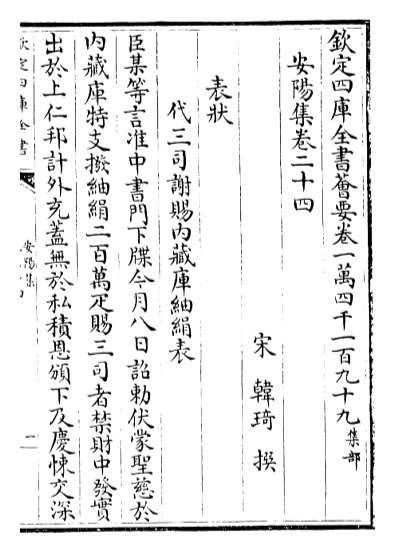 欽定四庫全書薈要卷一萬四千一百九十九集部
安陽集卷二十四
宋 韓琦 撰
表狀
代三司謝賜內藏庫紬絹表
臣某等言准中書門下牒今月八日詔勅伏蒙聖慈於
內藏庫特支撥紬絹二百萬疋賜三司者禁財中發實
出於上仁邦計外充蓋無於私積恩頒下及慶悚交深
欽定四庫全書
安陽集